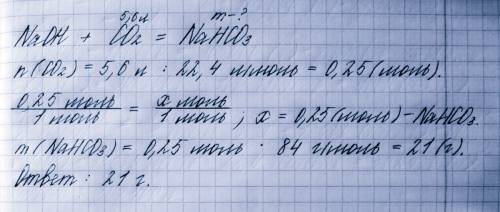 5,6 л m-?
NaOH + CO2 = NaHCO3
n(CO2) = 5,6 л : 22,4 л/моль = 0,25 (моль).
0,25 моль / 1 моль = x моль / 1 моль ; x = 0,25 (моль) - NaHCO3.
m(NaHCO3) = 0,25 моль · 84 г/моль = 21 (г).
Ответ : 21 г.